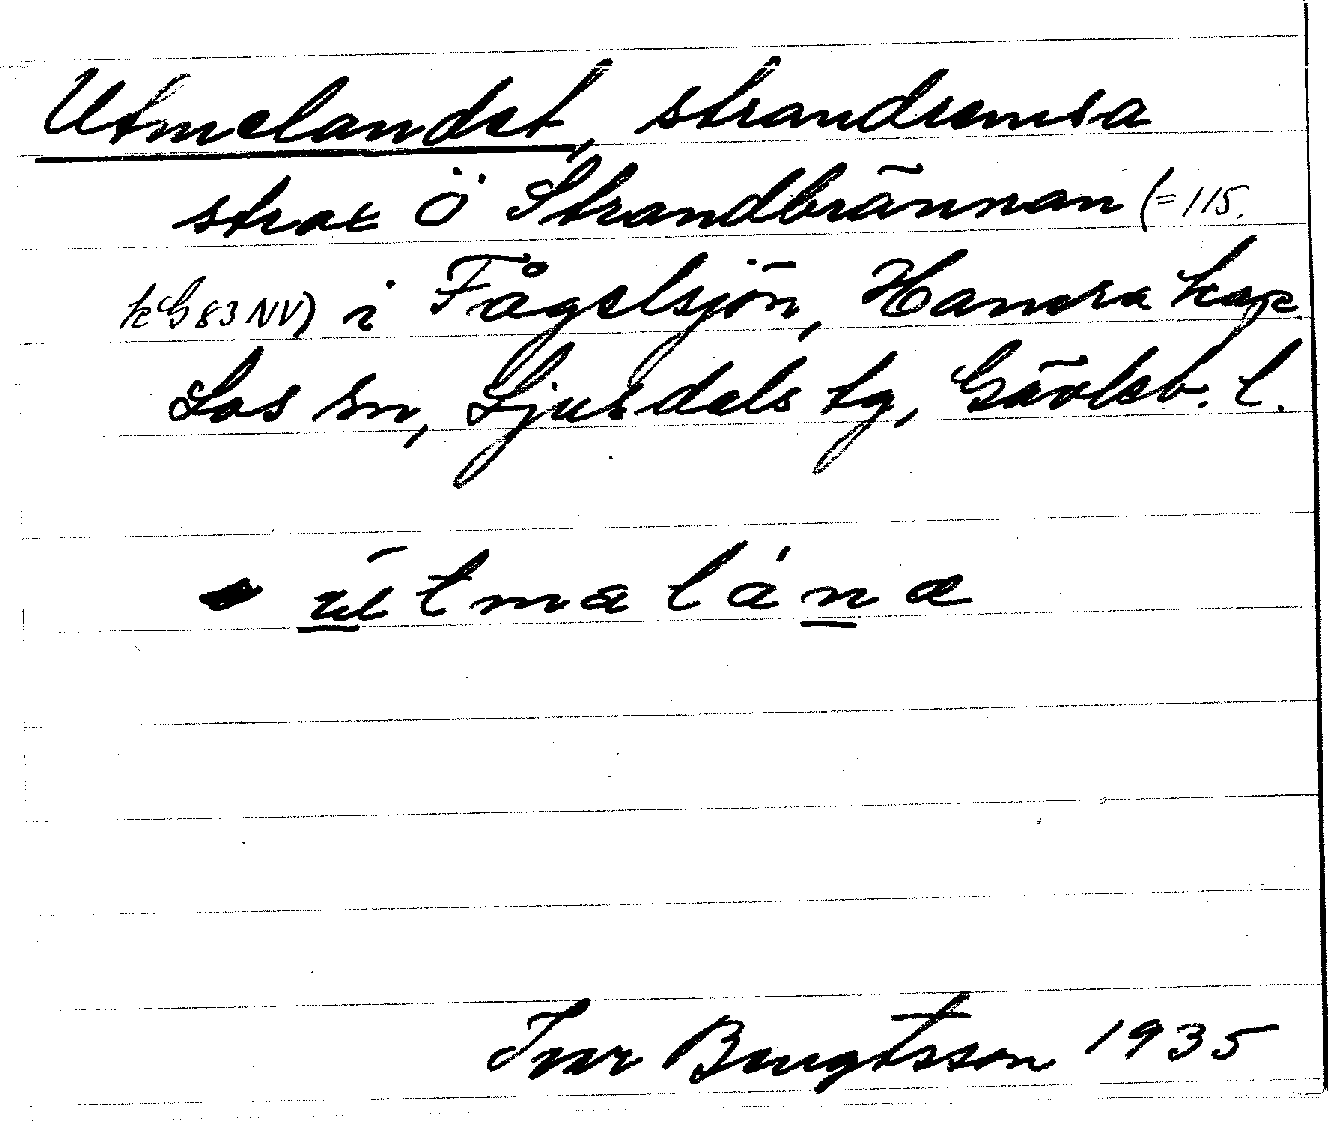 Utmelandet, strandremsa
strax Ö Strandbrännan (= 115.
kG 83 NV) i Fågelsjön, Hamra kap.
Los sn, Ljusdals tg, Gävleb. l.
u̲tmalán̲a
Ivar Bengtsson 1935